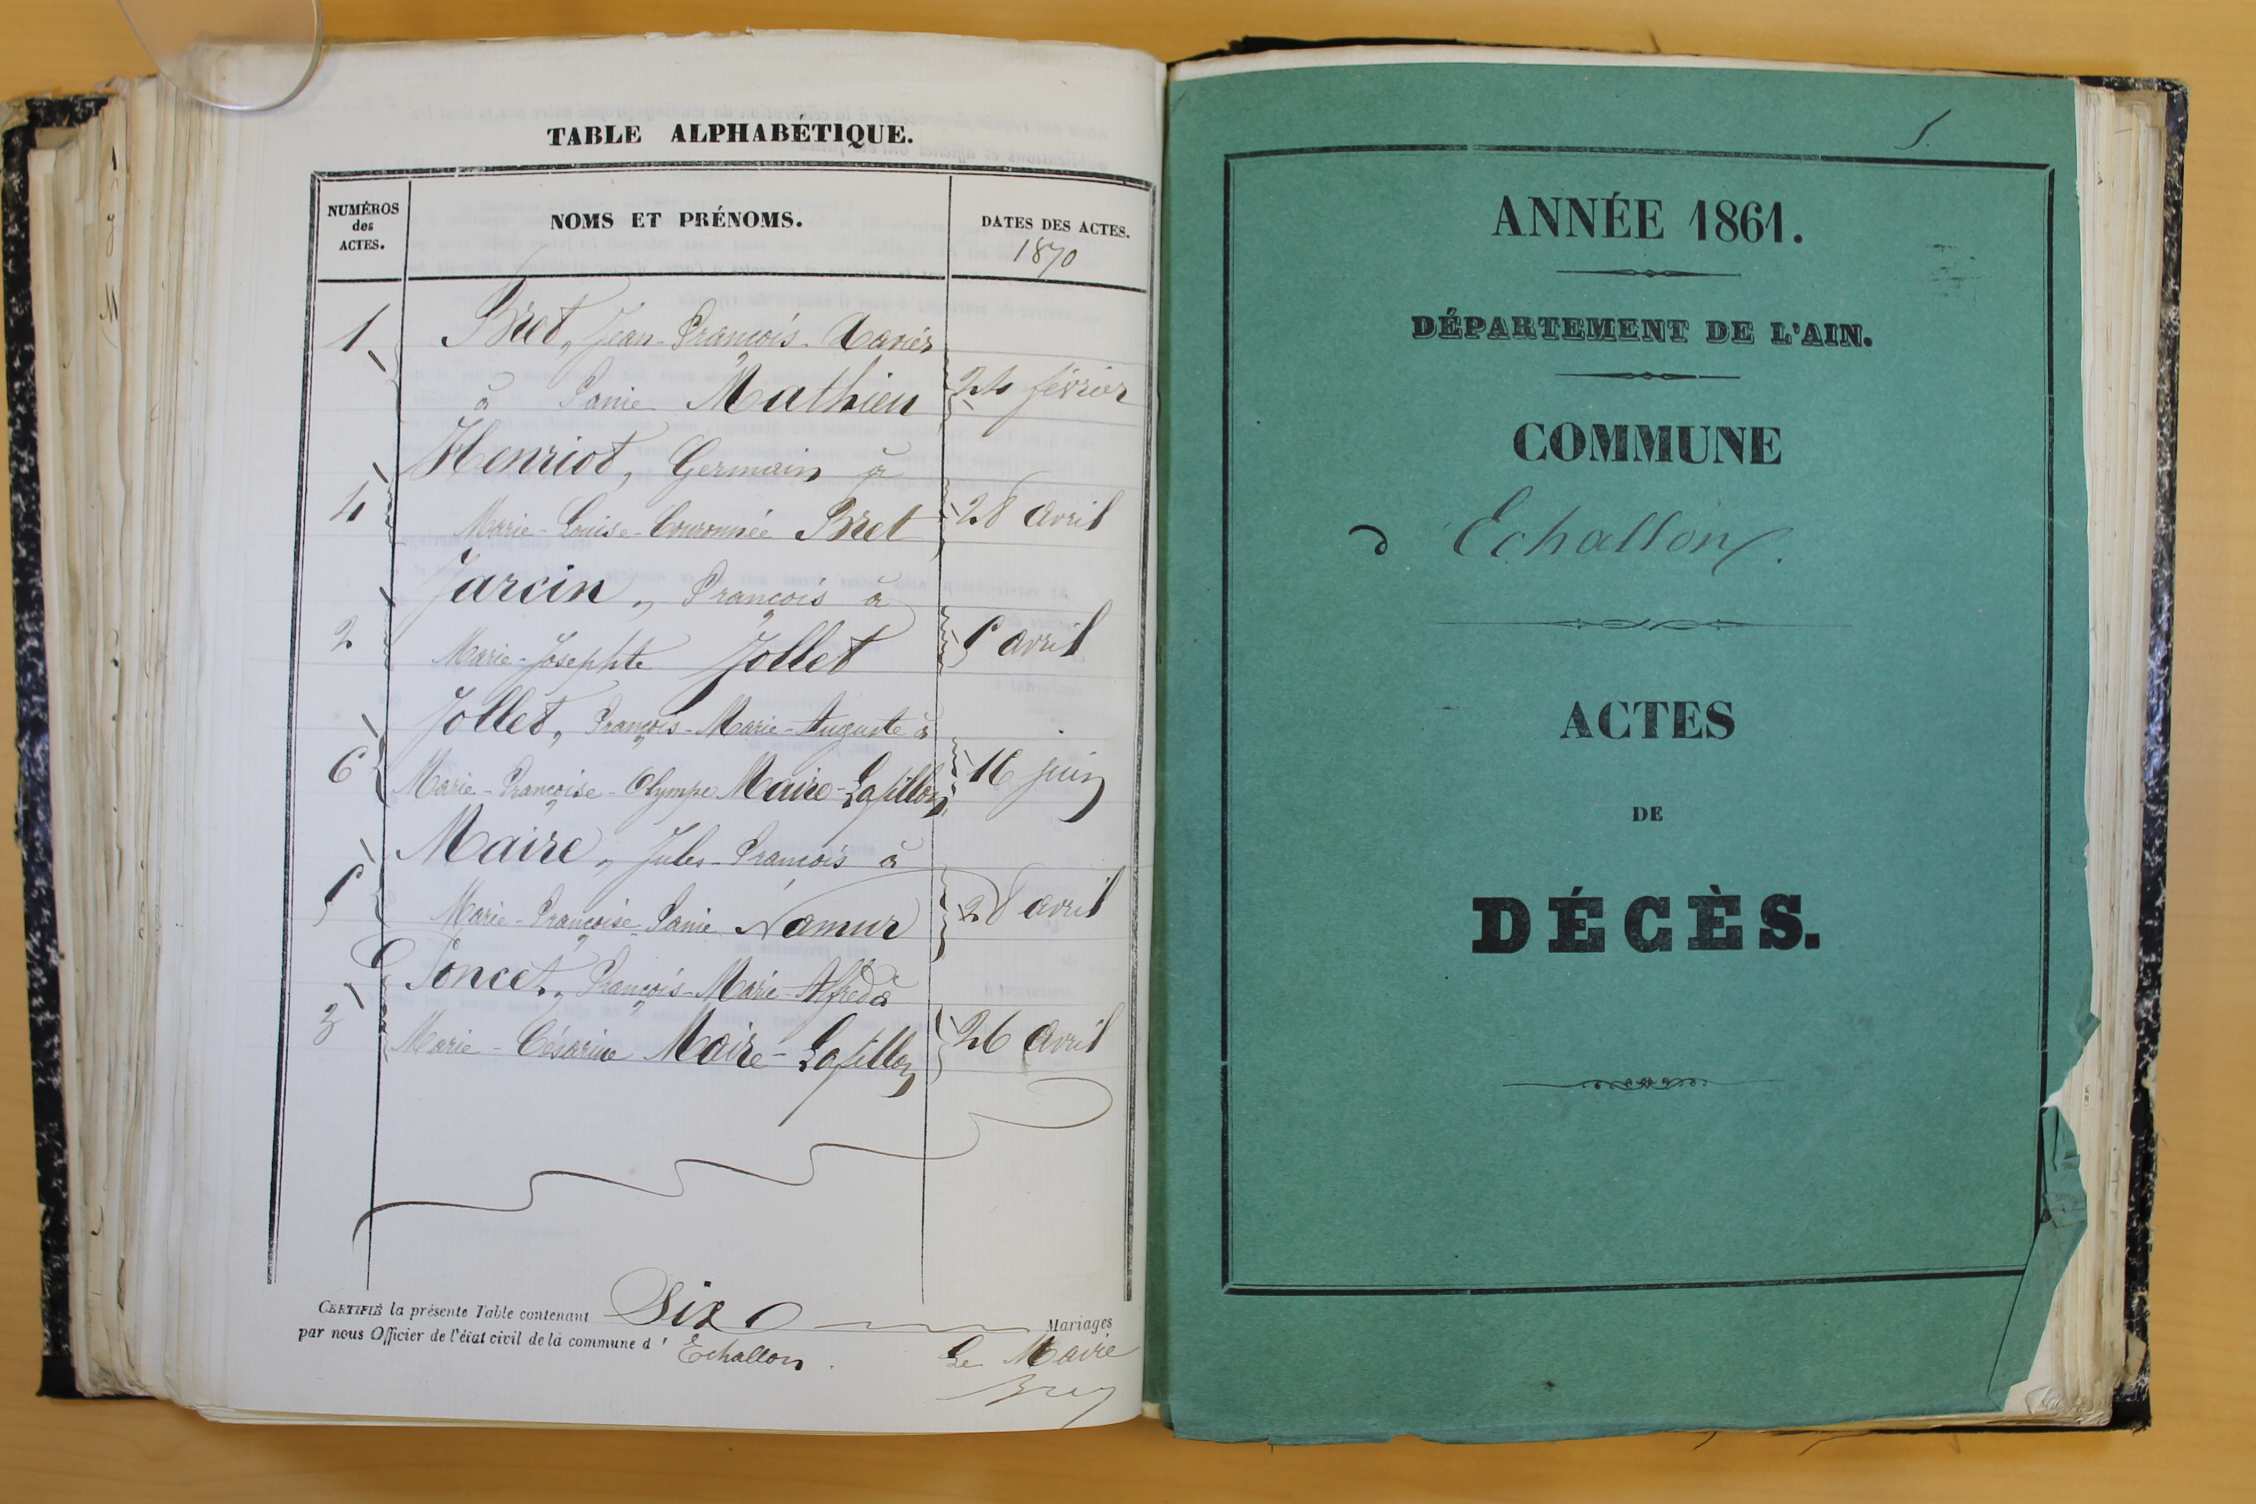 TABLE ALPHABÉTIQUE.
NUMÉROS
des
ACTES.
NOMS ET PRÉNOMS.
DATES DES ACTES.
1870
1 Bret, Jean-François-Xavier
à Janie Mathieu 24 février
Henriot, Germain à
4 Marie-Louise-Couronnée Bret 28 avril
Jarcin, François à
2 Marie-Josephte Jollet 5 avril
Jollet, François-Marie-Auguste à
6 Marie-Françoise-Olympe Maire-Lafillon 16 juin
Maire, Jules-François à
5 Marie-Françoise-Janie Namur 28 avril
Poncet, François-Marie-Alfred à
3 Marie-Césarine Maire-Lafillon 26 avril
CERTIFIÉ la présente Table contenant Six Mariages
par nous Officier de l'état civil de la commune d'Echallon.
Le Maire
ANNÉE 1861.
DÉPARTEMENT DE L'AIN.
COMMUNE
d'Echallon.
ACTES
DE
DÉCÈS.